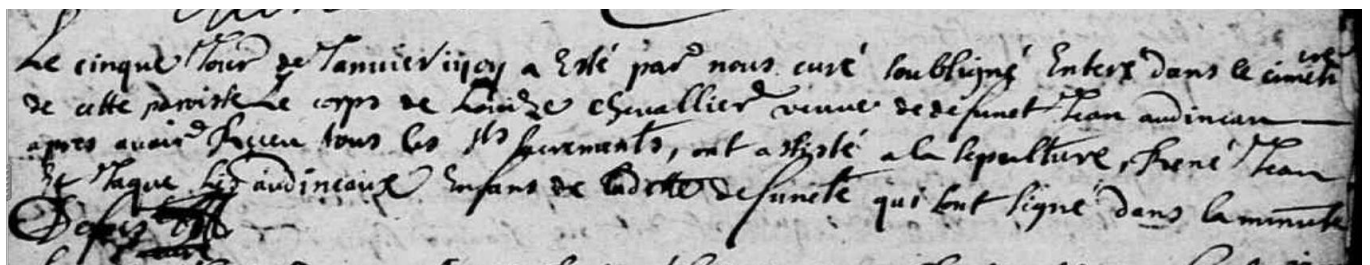 Le cinque Jour de Janvier a Esté par nous curé soubsigné Enteré dans le cimetiere
de cette paroisse Le corps de Louize chevallier veuve de defunct Jean audineau
apres avoir Receu tous les sts sacrements, ont assisté a la sepulture, René Jean
Et Jaque audineaux Enfans de ladite defuncte qui sont signé dans la minute